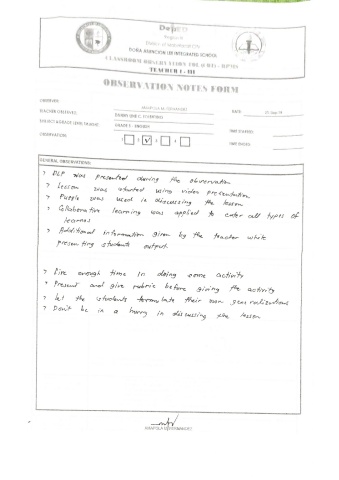 DepED
DOÑA ASUNCION LEE INTEGRATED SCHOOL
CLASSROOM OBSERVATION TOOL (COT) - RPMS
TEACHER I - III
OBSERVATION NOTES FORM
OBSERVER:
DATE
TEACHER OBSERVED:
OBSERVATION:
1 2 ✓ 3 4
TIME STARTED:
TIME ENDED:
GENERAL OBSERVATIONS:
> DLP was presented during the observation
> Lesson was started using video presentation
> Puzzle was used in discussing the lesson
> Collaborative learning was applied to enter all types of
learners
> Additional information given by the teacher while
presenting students output.
> Give enough time in doing some activity
> Present and give rubric before giving the activity
> Let the students formulate their own generalizations
> Don't be in a hurry in discussing the lesson